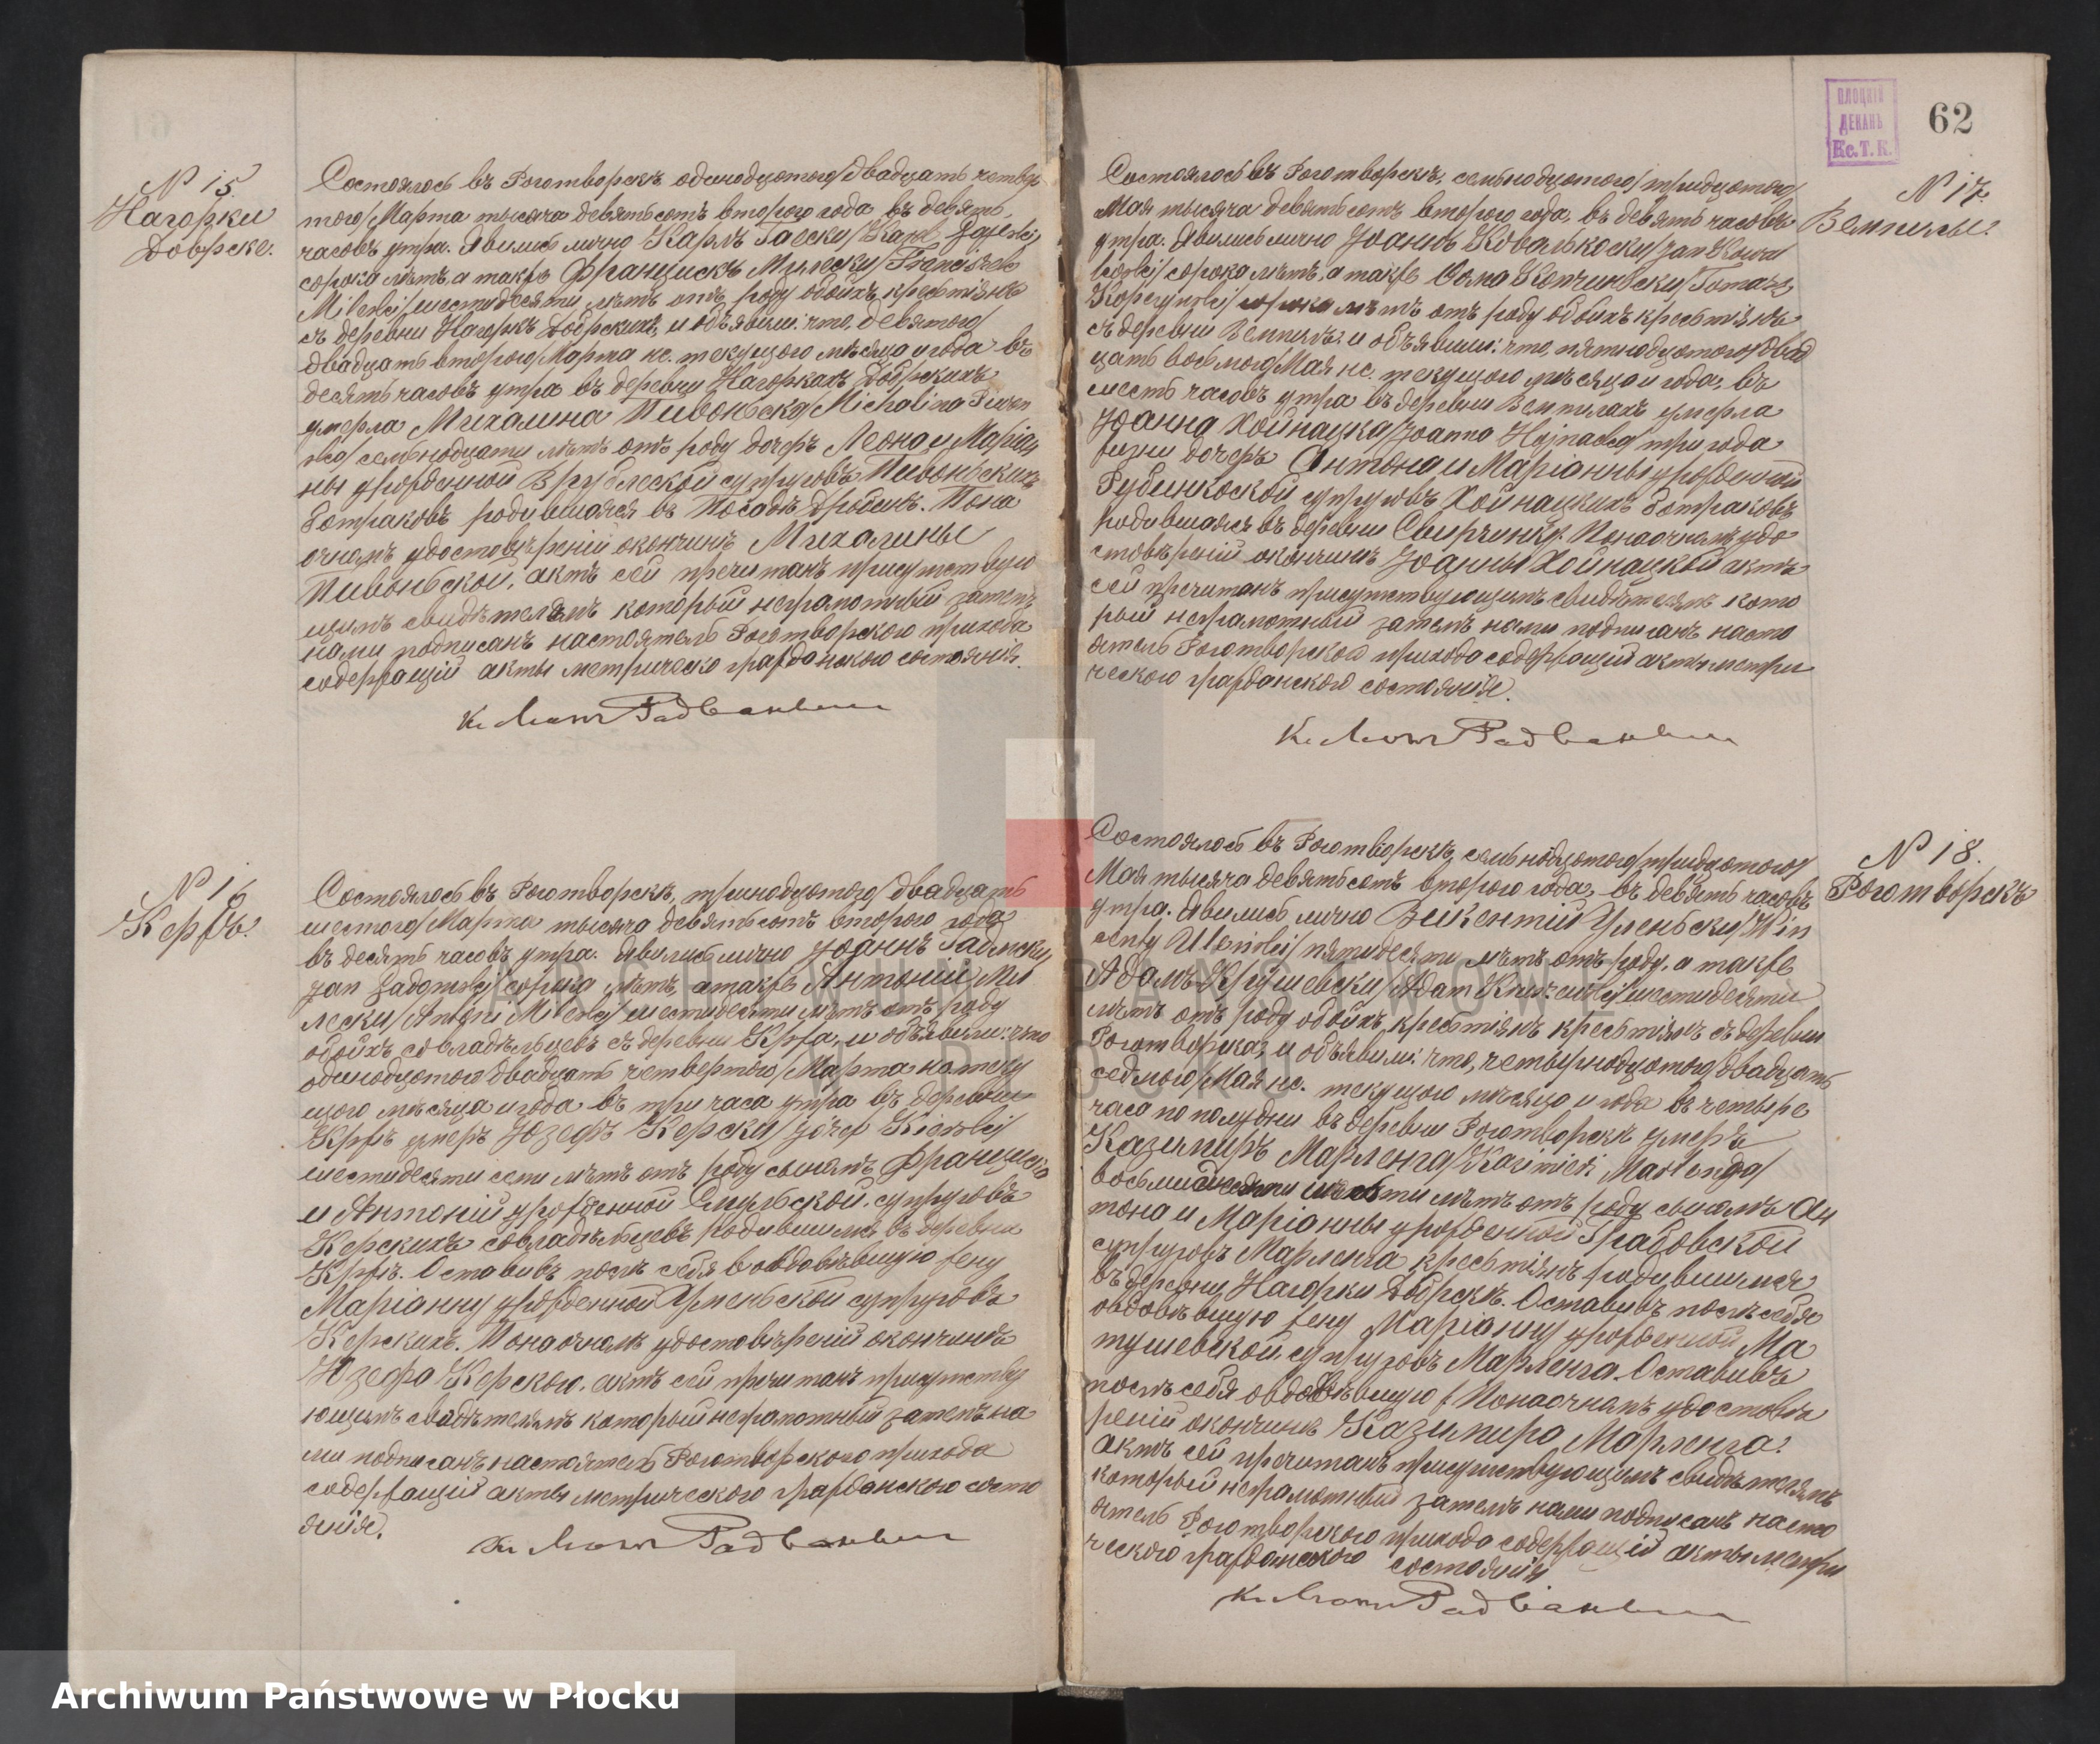 N 15
Нагорки
Добрске.
Состоялось въ Роготворскѣ одинадцатого/двадцать четвер
того/Марта тысяча девятьсотъ второго года, въ девять
часовъ утра. Явились лично Карлъ
сорока лѣтъ, а также Францискъ Милески/Franciszek
Milewski/шестидесяти лѣтъ отъ роду обоихъ крестіянъ
съ деревни Нагоркъ Добрскихъ, и объявили: что, девятого/
двадцать второго/Марта нс. текущого мѣсяца и года въ
десять часовъ утра въ деревни Нагоркахъ Добрскихъ
умерла Михалина Пивоньска/Michalina Piwon
ska/семьнодцати лѣтъ отъ роду дочерь Леона и Маріан
ны урожденной Врублеской супруговъ Пивоньскихъ
батраковъ родившаяся въ Посадѣ Дробинѣ. Пона
очномъ удостовѣреніи окончинѣ Михалины
Пивоньской, актъ сей прочитанъ присутствую
щимъ свидѣтелямъ который неграмотный затемъ
нами подписанъ настоятель Роготворского прихода
содержащій акты метрическо гражданского состоянія.
N 16
Кержъ.
Состоялось въ Роготворскѣ, тринодцатого/двадцать
шестого/Марта тысяча девятьсотъ второго года
въ десять часовъ утра. Явились лично Іоаннъ
Jan сорока лѣтъ, а также Антоній Ми
лески/Antoni Milewski/шестидесяти лѣтъ отъ роду
обоихъ совладѣльцевъ съ деревни Кржа, и объявили: что
одинодцатого двадцать четвертого/Марта нс. теку
щого мѣсяца и года въ три часа утра въ деревни
Кржѣ умеръ Юзефъ Керски/Józef Kierski/
шестидесяти семи лѣтъ отъ роду сынамъ Францишка
и Антоніи урожденной супруговъ
Керскихъ совладѣльцевъ родившимся въ деревни
Кржѣ. Оставивъ послѣ себя вовдовѣвшую жену
Маріанну урожденной Уменьской супруговъ
Керскихъ. Понаочномъ удостовѣреніи окончинѣ
Юзефа Керского, актъ сей прочитанъ присутству
ющимъ свидѣтелямъ который неграмотный затемъ на
ми подписанъ настоятель Роготворского прихода
содержащій акты метрического гражданского состо
янія.
ПЛОЦКІЙ
ДЕКАНЪ
Кс. Т. К.
62
N 17.
Вемпилы.
Состоялось въ Роготворскѣ, семьнодцатого/тридцатого/
Мая тысяча девятьсотъ второго года, въ девять часовъ
утра. Явились лично Іоаннъ Ковалькоски/Jan Kowal
kowski/сорока лѣтъ, а также Ѳома Копчиньски/Tomasz
сорока лѣтъ отъ роду обоихъ крестіянъ
съ деревни Вемпилъ: и объявили: что, пятнодцатого/двад
цать восьмого/Мая нс. текущого мѣсяца и года, въ
шесть часовъ утра въ деревни Вемпилахъ умерла
Іоанна Хойнацка/Joanna Hojnacka/три года
жизни дочерь Антона и Маріанны урожденной
Рубинкоской супруговъ Хойнацкихъ батраковъ
родившаяся въ деревни Свирчинку. Понаочномъ удо
стовѣреніи окончинѣ Іоанны Хойнацкой актъ
сей прочитанъ присутствующимъ свидѣтелямъ кото
рый неграмотный затемъ нами подписанъ насто
ятель Роготворского прихода содержащій акты метри
ческого гражданского состоянія.
N 18.
Роготворскъ
Состоялось въ Роготворскѣ, семьнодцатого/тридцатого/
Мая тысяча девятьсотъ второго года, въ девять часовъ
утра. Явились лично Викентій Уленьски/Win
centy Ulenski/пятидесяти лѣтъ отъ роду, а также
Адамъ Крушевски/Adam Kruszewski/шестидесяти
лѣтъ отъ роду обоихъ, крестіянъ крестіянъ съ деревни
Роготворска, и объявили: что, четырнодцатого/двадцать
седмого/Мая нс. текущого мѣсяца и года въ четыре
часа по полудни въ деревни Роготворскѣ умеръ
Казимиръ Марленга/Kazimierz Marlenga/
лѣтъ отъ роду сынамъ Ан
тона и Маріанны урожденной Грабовской
супруговъ Марленга крестіянъ родившимся
въ деревни Нагорки Добрскѣ. Оставивъ послѣ себя
овдовѣвшую жену Маріанну урожденной Ма
тушевской, супруговъ Марленга. Оставивъ
послѣ себя овдовѣвшую Понаочномъ удостовѣ
реніи окончинѣ Казимира Марленга:
актъ сей прочитанъ присутствующимъ свидѣтелямъ
который неграмотный затемъ нами подписанъ насто
ятель Роготворского прихода содержащій акты метри
ческого гражданского состоянія
ARCHIWUM PAŃSTWOWE
W PŁOCKU
Archiwum Państwowe w Płocku